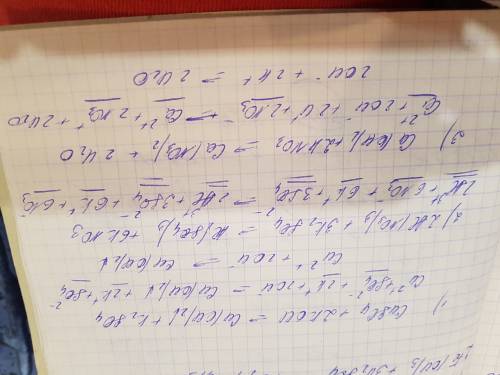 1) CuSO₄ + 2KOH = Cu(OH)₂↓ + K₂SO₄
Cu²⁺ + SO₄²⁻ + 2K⁺ + 2OH⁻ = Cu(OH)₂↓ + 2K⁺ + SO₄²⁻
Cu²⁺ + 2OH⁻ = Cu(OH)₂↓
2) 2Al(NO₃)₃ + 3K₂SO₄ = Al(SO₄)₃ + 6KNO₃
2Al³⁺ + 6NO₃⁻ + 6K⁺ + 3SO₄²⁻ = 2Al³⁺ + 3SO₄²⁻ + 6K⁺ + 6NO₃⁻
3) Ca(OH)₂ + 2HNO₃ = Ca(NO₃)₂ + 2H₂O
Ca²⁺ + 2OH⁻ + 2H⁺ + 2NO₃⁻ = Ca²⁺ + 2NO₃⁻ + 2H₂O
2OH⁻ + 2H⁺ = 2H₂O